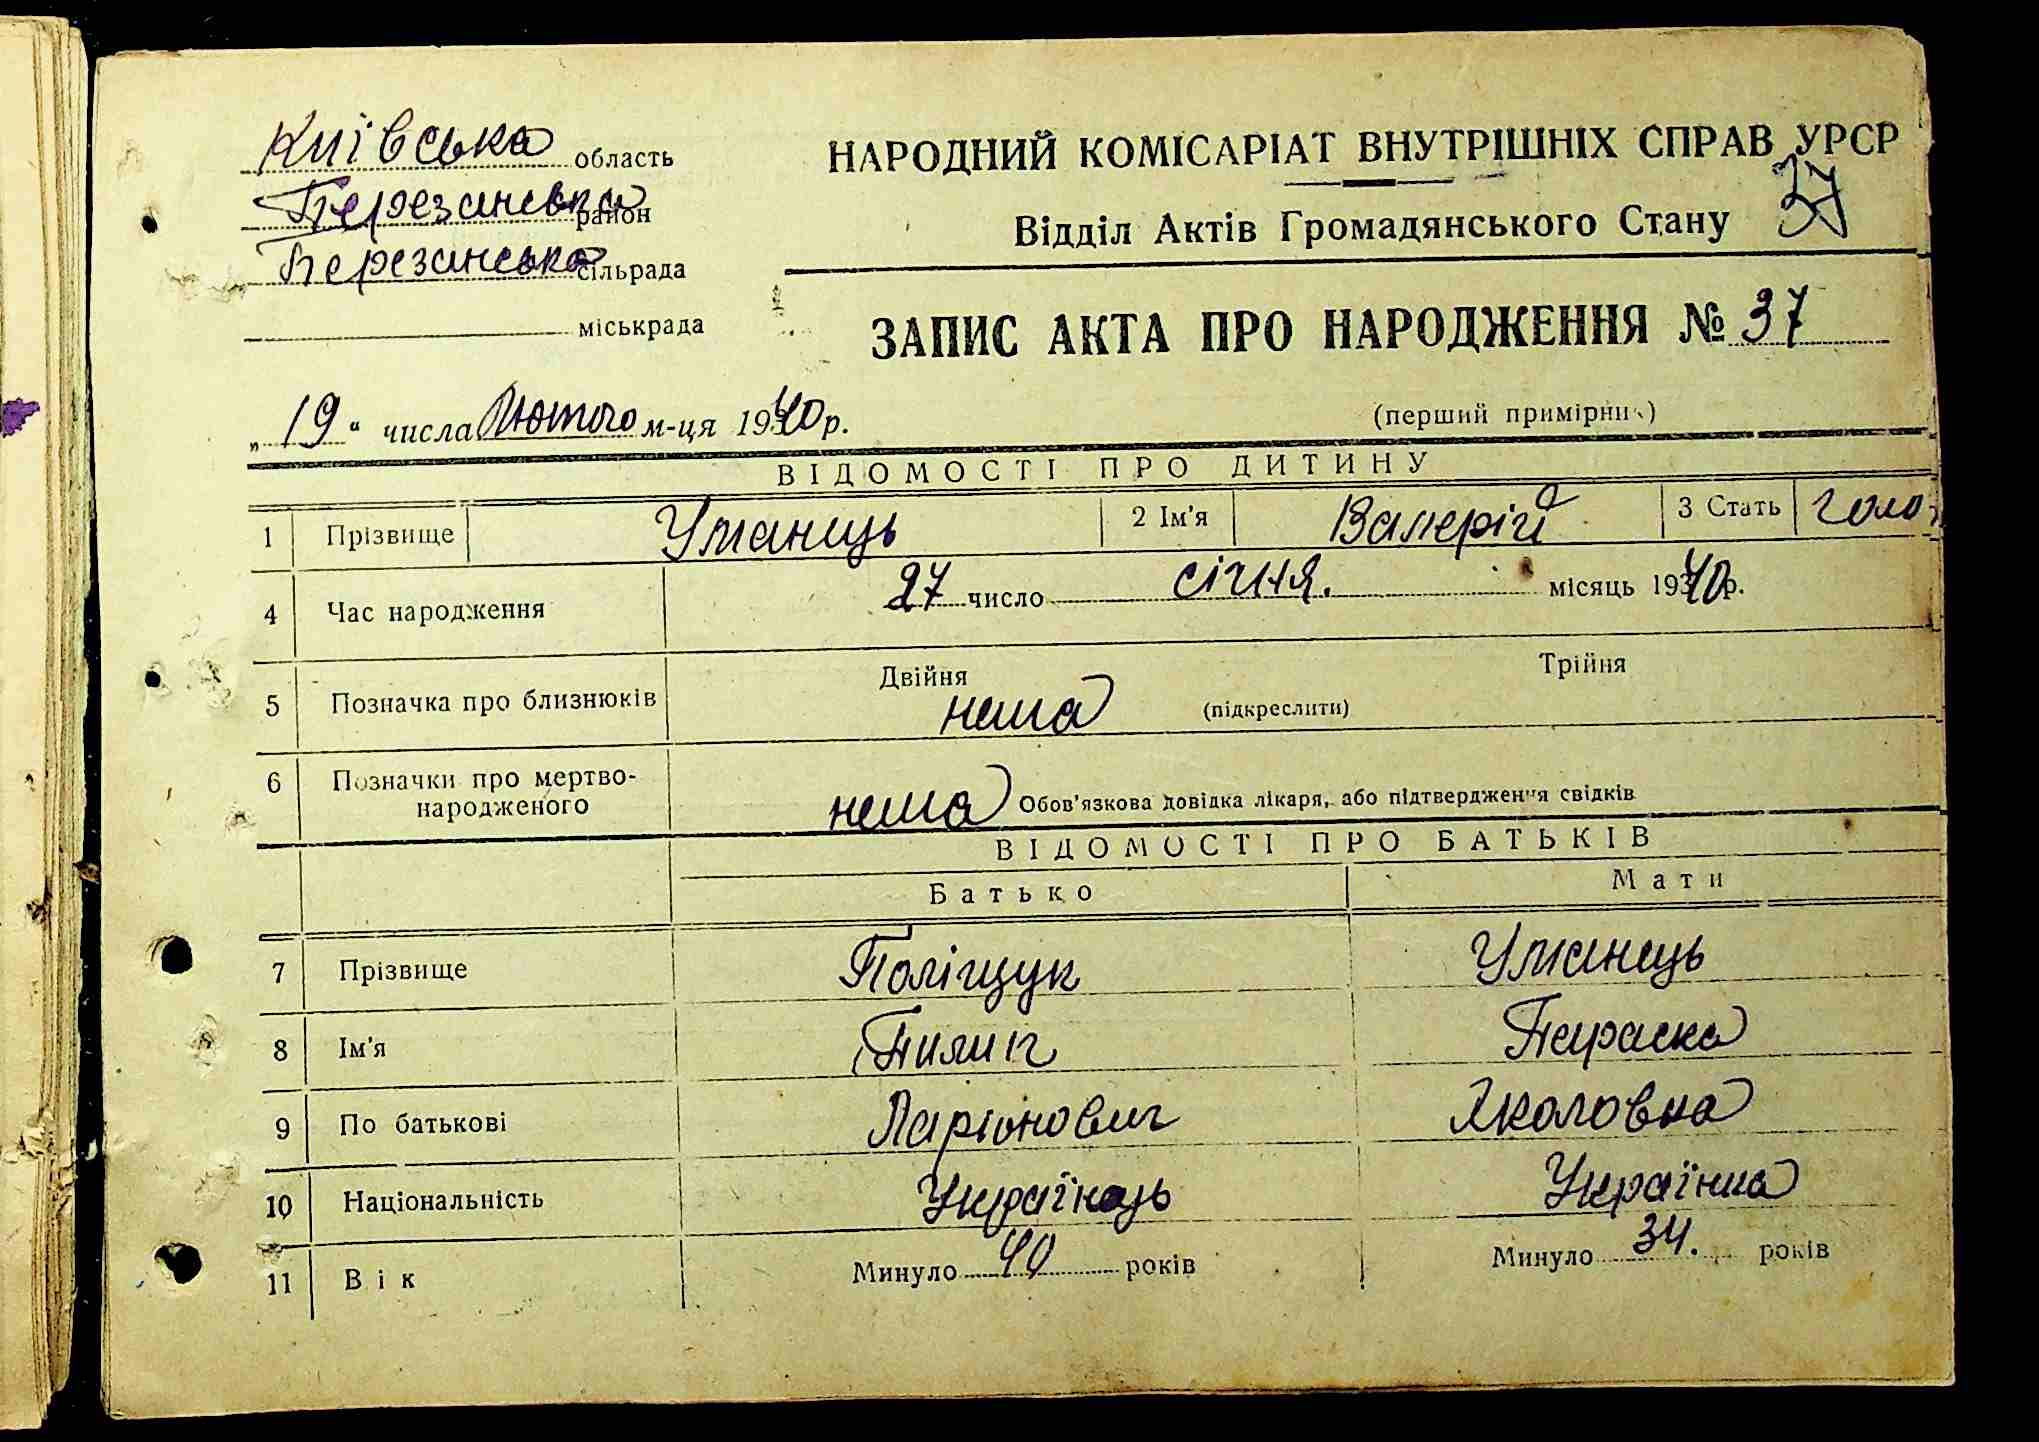 Київська область
НАРОДНИЙ КОМІСАРІАТ ВНУТРІШНІХ СПРАВ УРСР
37
Березанська район
Відділ Актів Громадянського Стану
Березанська сільрада
міськрада
ЗАПИС АКТА ПРО НАРОДЖЕННЯ № 37
„19“ числа Лютого м-ця 1940 р.
(перший примірник)
ВІДОМОСТІ ПРО ДИТИНУ
1 Прізвище Уманець 2 Ім'я Валерій 3 Стать чоло
4 Час народження 27 число січня. місяць 1940 р.
Двійня Трійня
5 Позначка про близнюків нема (підкреслити)
6 Позначки про мертво-
народженого нема Обов'язкова довідка лікаря, або підтвердження свідків
ВІДОМОСТІ ПРО БАТЬКІВ
Батько Мати
7 Прізвище Поліщук Уманець
8 Ім'я Пилип Параска
9 По батькові Ларіонович Яковловна
10 Національність Українець Українка
11 Вік Минуло 40 років Минуло 34. років